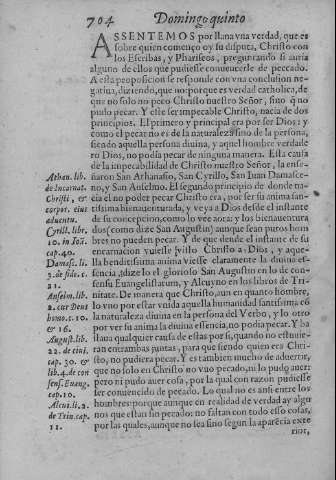 704 Domingo quinto
ASSENTEMOS por llana vna verdad, que es
sobre quien començo oy su disputa, Christo con
los Escribas, y Phariseos, preguntando si auria
alguno de ellos que pudiesse conuencerle de peccado.
A esta proposicion se responde con vna conclusion ne-
gatiua, diziendo, que no: porque es verdad catholica, de
que no solo no peco Christo nuestro Señor, sino q̃ no
pudo pecar. Y este ser impecable Christo, nacia de dos
principios. El primero y principal era por ser Dios; y
como el pecar no es de la naturaleza sino de la persona,
siendo aquella persona diuina, y aquel hombre verdade
ro Dios, no podia pecar de ninguna manera. Esta causa
de la impecabilidad de Christo nuestro Señor, la ense-
ñaron San Athanasio, San Cyrillo, San Iuan Damasce-
no, y San Anselmo. El segundo principio de donde na-
cia el no poder pecar Christo era, por ser su anima san-
tissima bienauenturada, y veya a Dios desde el instante
de su concepcion, como lo vee aora: y los bienauentura
dos (como dize San Augustin) aunque sean puros hom
bres no pueden pecar. Y de que desde el instante de su
encarnacion vuiesse visto Christo a Dios, y aque-
lla benditissima anima viesse claramente la diuina es-
sencia, dizelo el glorioso San Augustin en lo de con-
sensu Euangelistarum, y Alcuyno en los libros de Tri-
nitate. De manera que Christo, aun en quanto hombre,
lo vno por estar vnida aquella humanidad santissima cõ
la naturaleza diuina en la persona del Verbo, y lo otro
por ver su anima la diuina essencia, no podia pecar. Y ba
staua qualquier causa de estas por si, quando no estuuie-
ran entrambas juntas, para que siendo quien era Chri-
sto, no pudiera pecar. Y es tambien mucho de aduertir,
que no solo en Christo no vuo pecado, ni lo pudo auer:
pero ni pudo auer cosa, por la qual con razon pudiesse
ser conuencido de pecado. Lo qual no es ansi entre los
hombres: porque aunque en realidad de verdad ay algu
nos que estan sin pecado: no faltan con todo esso cosas,
por las quales, aunque no sea sino segun la aparēcia exte
rior,
Athan. lib.
de Incarnat.
Christi, &
corpor. eius
aduentu.
Cyrill. libr.
10. in Ioã.
cap. 40.
Damasc. li.
3. de fide. c.
21.
Anselm. lib.
2. cur Deus
homo. c. 10.
& 16.
August. lib.
22. de ciui.
cap. 30. &
lib. 4. de con
sens. Euang.
cap. 10.
Alcui. li. 2.
de Trin. cap.
11.